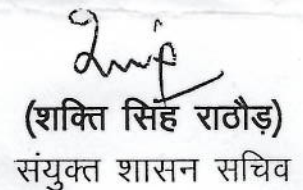 (शक्ति सिंह राठौड़)
संयुक्त शासन सचिव